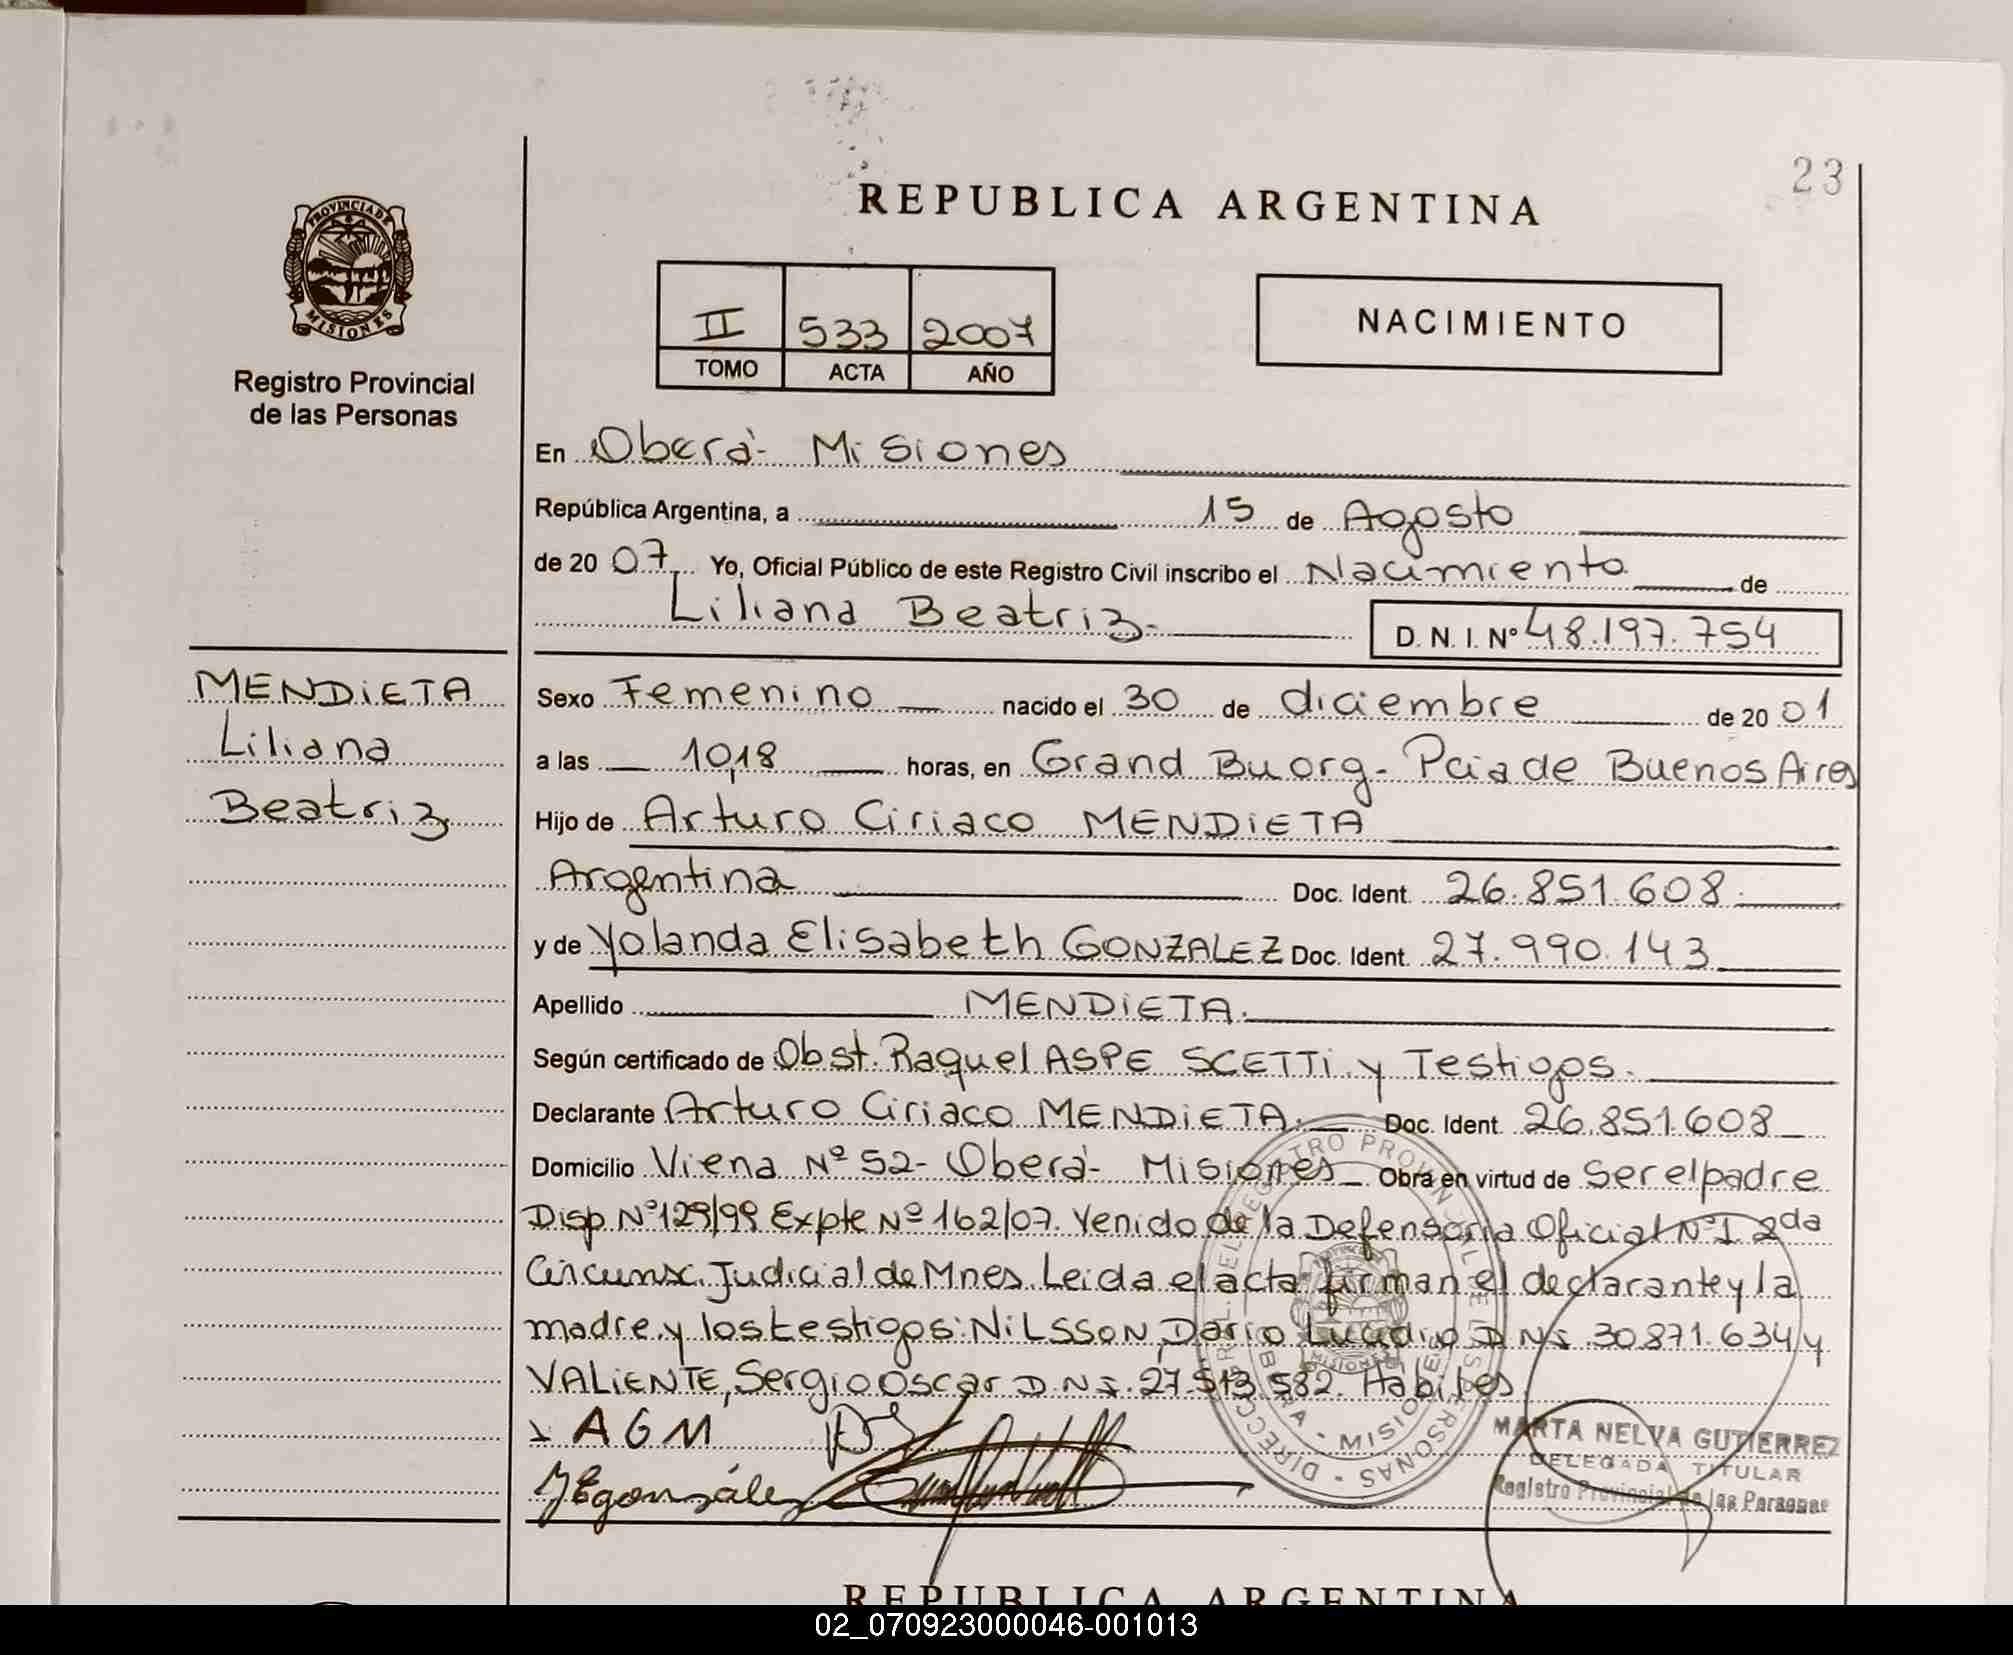 23
REPUBLICA ARGENTINA
PROVINCIA DE
MISIONES
Registro Provincial
de las Personas
II 533 2007
TOMO ACTA AÑO
NACIMIENTO
En Oberá- Misiones
República Argentina, a 15 de Agosto
de 20 07 Yo, Oficial Público de este Registro Civil inscribo el Nacimiento de
Liliana Beatriz- D. N. I. Nº 48.197.754
MENDIETA
Liliana
Beatriz
Sexo Femenino nacido el 30 de diciembre de 20 01
a las 10,18 horas, en Grand Buorg- Pcia de Buenos Aires
Hijo de Arturo Ciriaco MENDIETA
Argentina Doc. Ident. 26.851.608.
y de Yolanda Elisabeth GONZALEZ Doc. Ident. 27.990.143
Apellido MENDIETA.
Según certificado de Obst. Raquel ASPE SCETTI y Testigos.
Declarante Arturo Ciriaco MENDIETA. Doc. Ident. 26.851.608
Domicilio Viena Nº 52- Oberá- Misiones Obra en virtud de Ser el padre
Disp. Nº 129/99 Expte Nº 162/07. Venido de la Defensoria Oficial Nº 1 2da
Circunsc. Judicial de Mnes. Leida el acta firman el declarante y la
madre y los testigos: NILSSON, Dario Lucidio D.N.I. 30.871.634 y
VALIENTE, Sergio Oscar D.N.I. 27.513.582. Habiles.
AGM
YEgonzález
MARTA NELVA GUTIERREZ
DELEGADA TITULAR
Registro Provincial de las Personas
REPUBLICA ARGENTINA
02_070923000046-001013